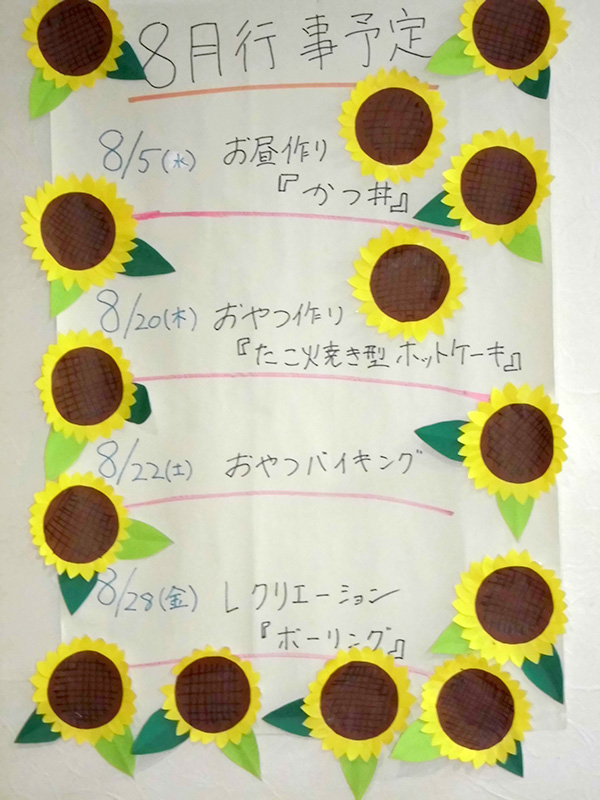 8月行事予定
8/5(水) お昼作り
『かつ丼』
8/20(木) おやつ作り
『たこ焼き型ホットケーキ』
8/22(土) おやつバイキング
8/28(金) レクリエーション
『ボーリング』